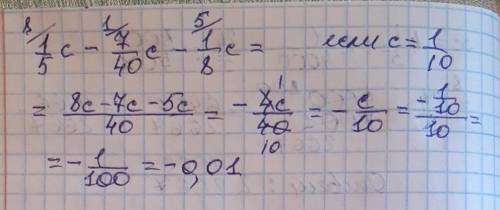 ⁸/ 1/5 c − ¹/ 7/40 c − ⁵/ 1/8 c = если c = 1/10
= (8c − 7c − 5c)/40 = − 4c/40 (1, 10) = − c/10 = (− 1/10)/10 =
= − 1/100 = −0,01